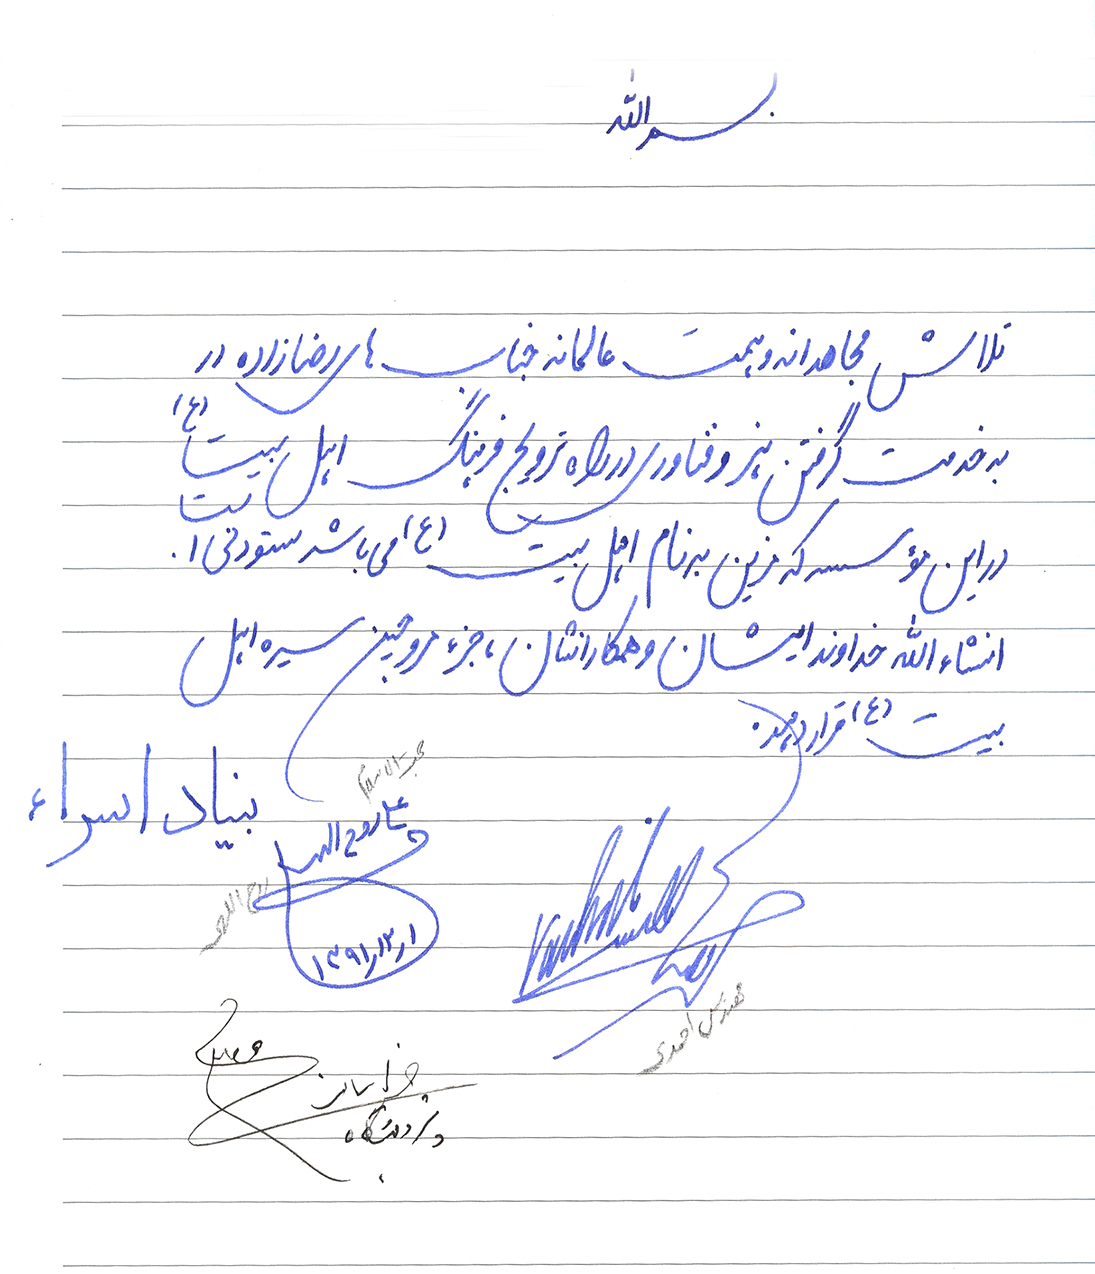 بسم الله
تلاش مجاهدانه و همت عالمانه جناب های رضازاده در
به خدمت گرفتن هنر و فناوری در راه ترویج فرهنگ اهل بیت (ع)
در این مؤسسه که مزین به نام اهل بیت (ع) می باشد ستودنی ا.
انشاء الله خداوند ایشان و همکارانشان ، جزء مروجین سیره اهل
بیت (ع) قرار دهد.
بنیاد اسراء
روح الله
۱۳۹۱/۱۲/۱
مهندس احمدی